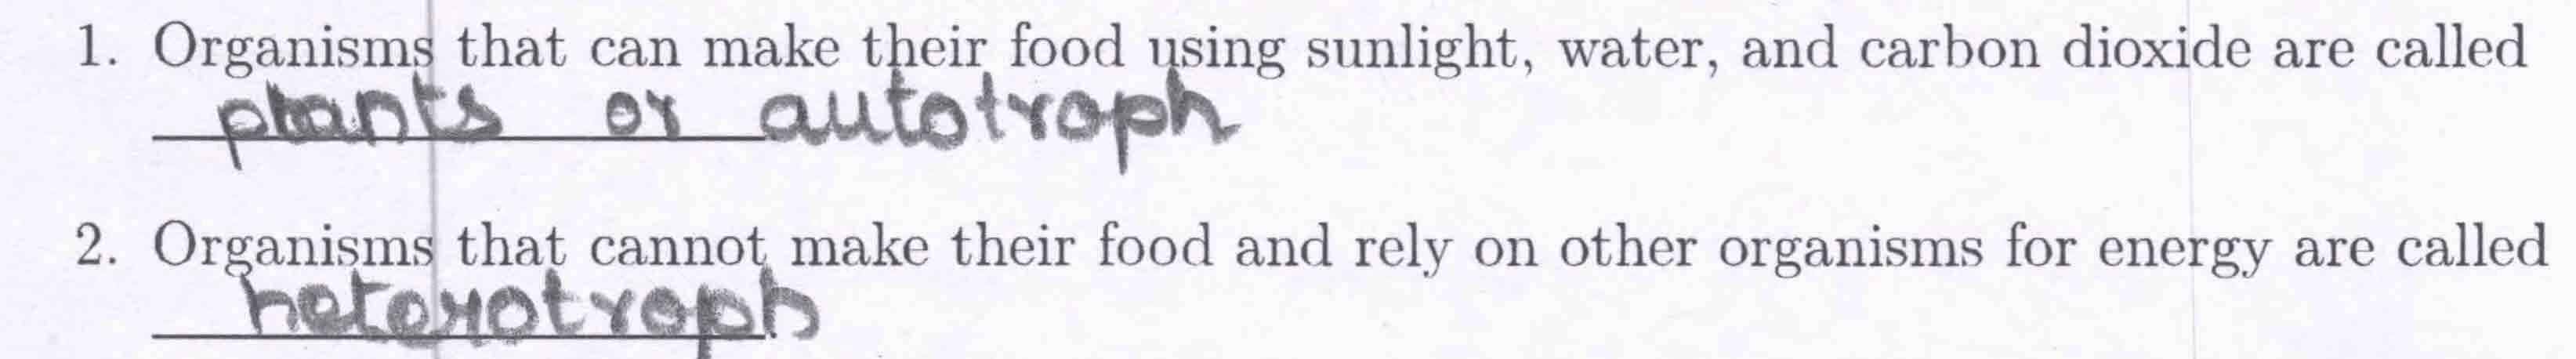 1. Organisms that can make their food using sunlight, water, and carbon dioxide are called
plants or autotroph
2. Organisms that cannot make their food and rely on other organisms for energy are called
heterotroph.